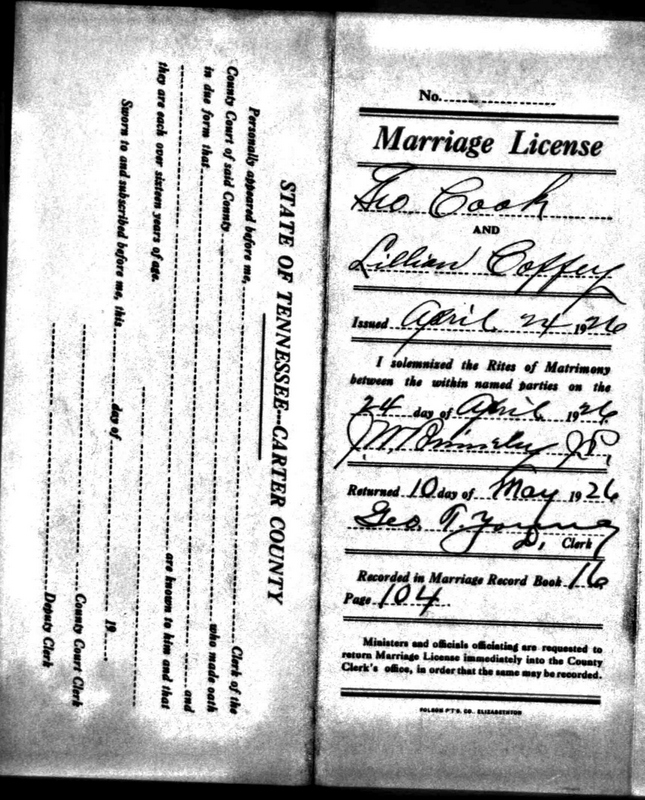 STATE OF TENNESSEE—CARTER COUNTY
Personally appeared before me, Clerk of the
County Court of said County who made oath
in due form that
and
are known to him and that
they are each over sixteen years of age.
Sworn to and subscribed before me, this day of 19
County Court Clerk
Deputy Clerk
No.
Marriage License
Geo Cook
AND
Lillian Coffey
Issued April 24 1926
I solemnized the Rites of Matrimony
between the within named parties on the
24 day of April 1926
J.M. J.P.
Returned 10 day of May 1926
Geo T. Young
Clerk
Recorded in Marriage Record Book 16
Page 104
Ministers and officials officiating are requested to
return Marriage License immediately into the County
Clerk's office, in order that the same may be recorded.
FOLSOM P'T'G. CO., ELIZABETHTON